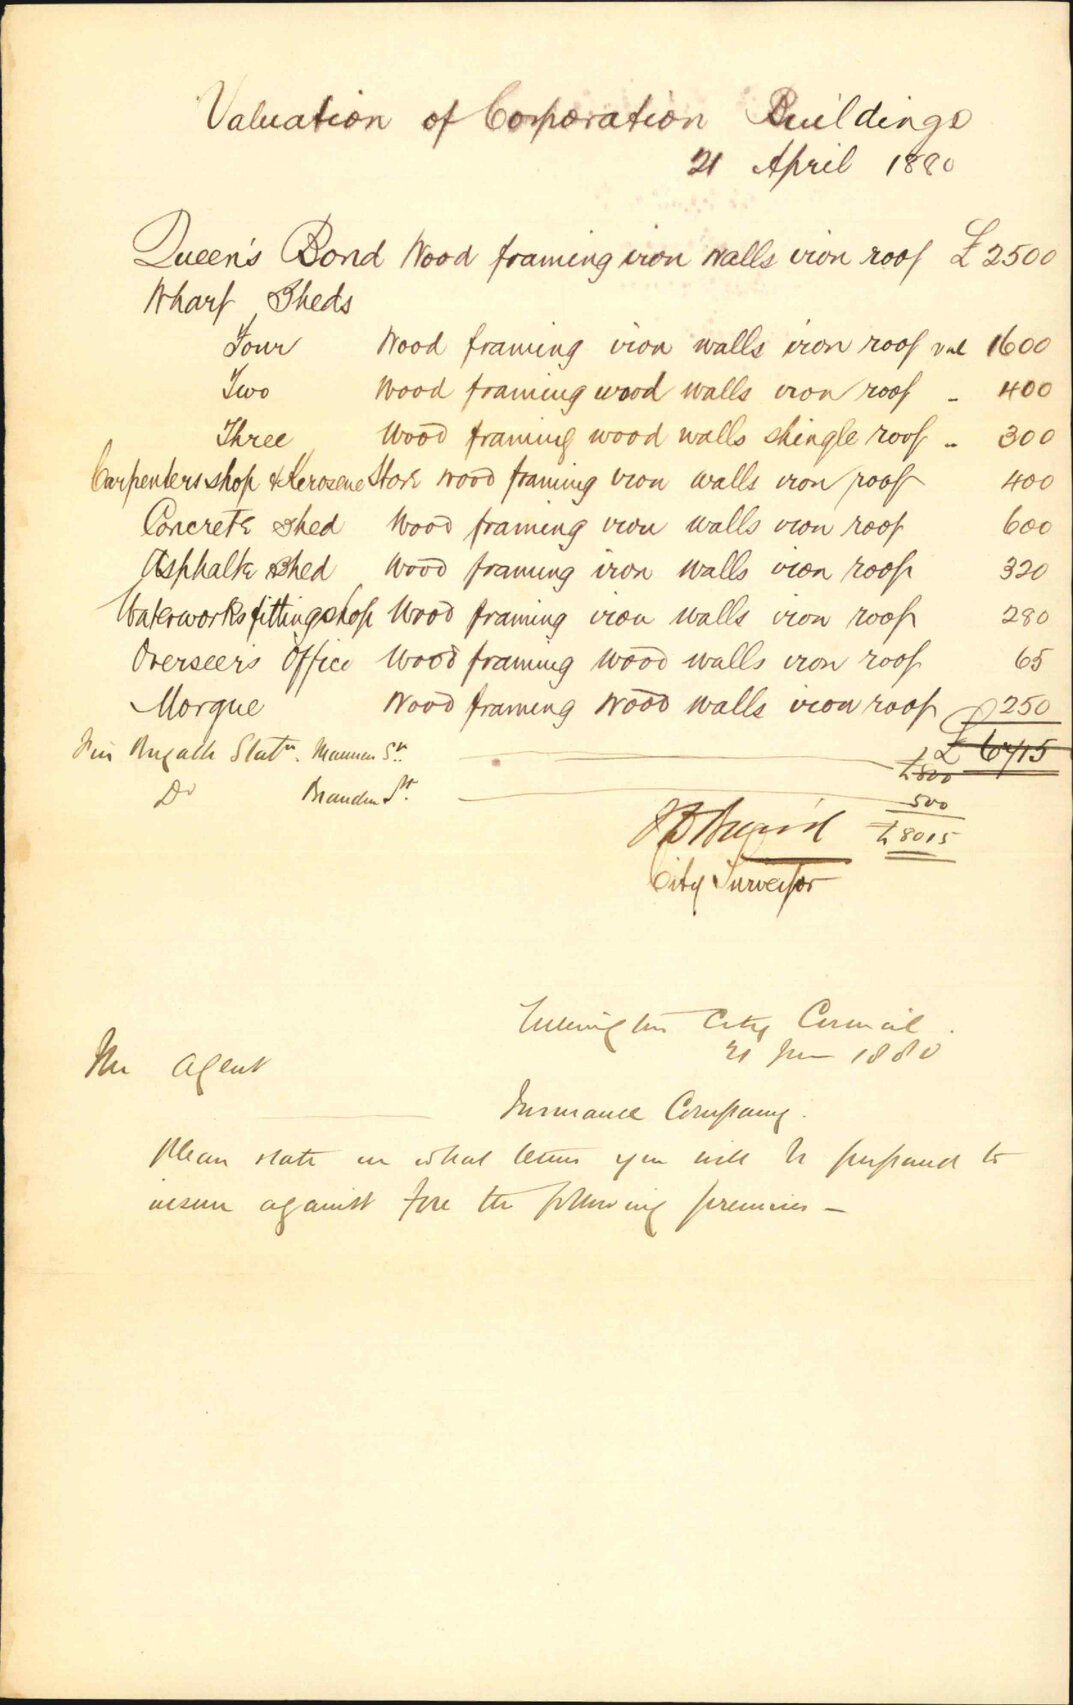 Valuation of Corporation Buildings
21 April 1880
Queen's Bond Wood framing iron walls iron roof £2500
Wharf Sheds
Four Wood framing iron walls iron roof val 1600
Two Wood framing wood walls iron roof - 400
Three Wood framing wood walls shingle roof - 300
Carpenters shop & Kerosene Store wood framing iron walls iron roof 400
Concrete Shed Wood framing iron walls iron roof 600
Asphalte Shed Wood framing iron walls iron roof 320
Waterworks fitting shop Wood framing iron walls iron roof 280
Overseer's Office Wood framing wood walls iron roof 65
Morgue Wood framing Wood walls iron roof 250
£ 6715
Fire Brigade Statn. Manners St. £800
Do Brandon St. 500
£8015
City Surveyor
Wellington City Council.
21 1880
The Agent
Insurance Company.
Please state on what terms you will be prepared to
insure against fire the following premises —